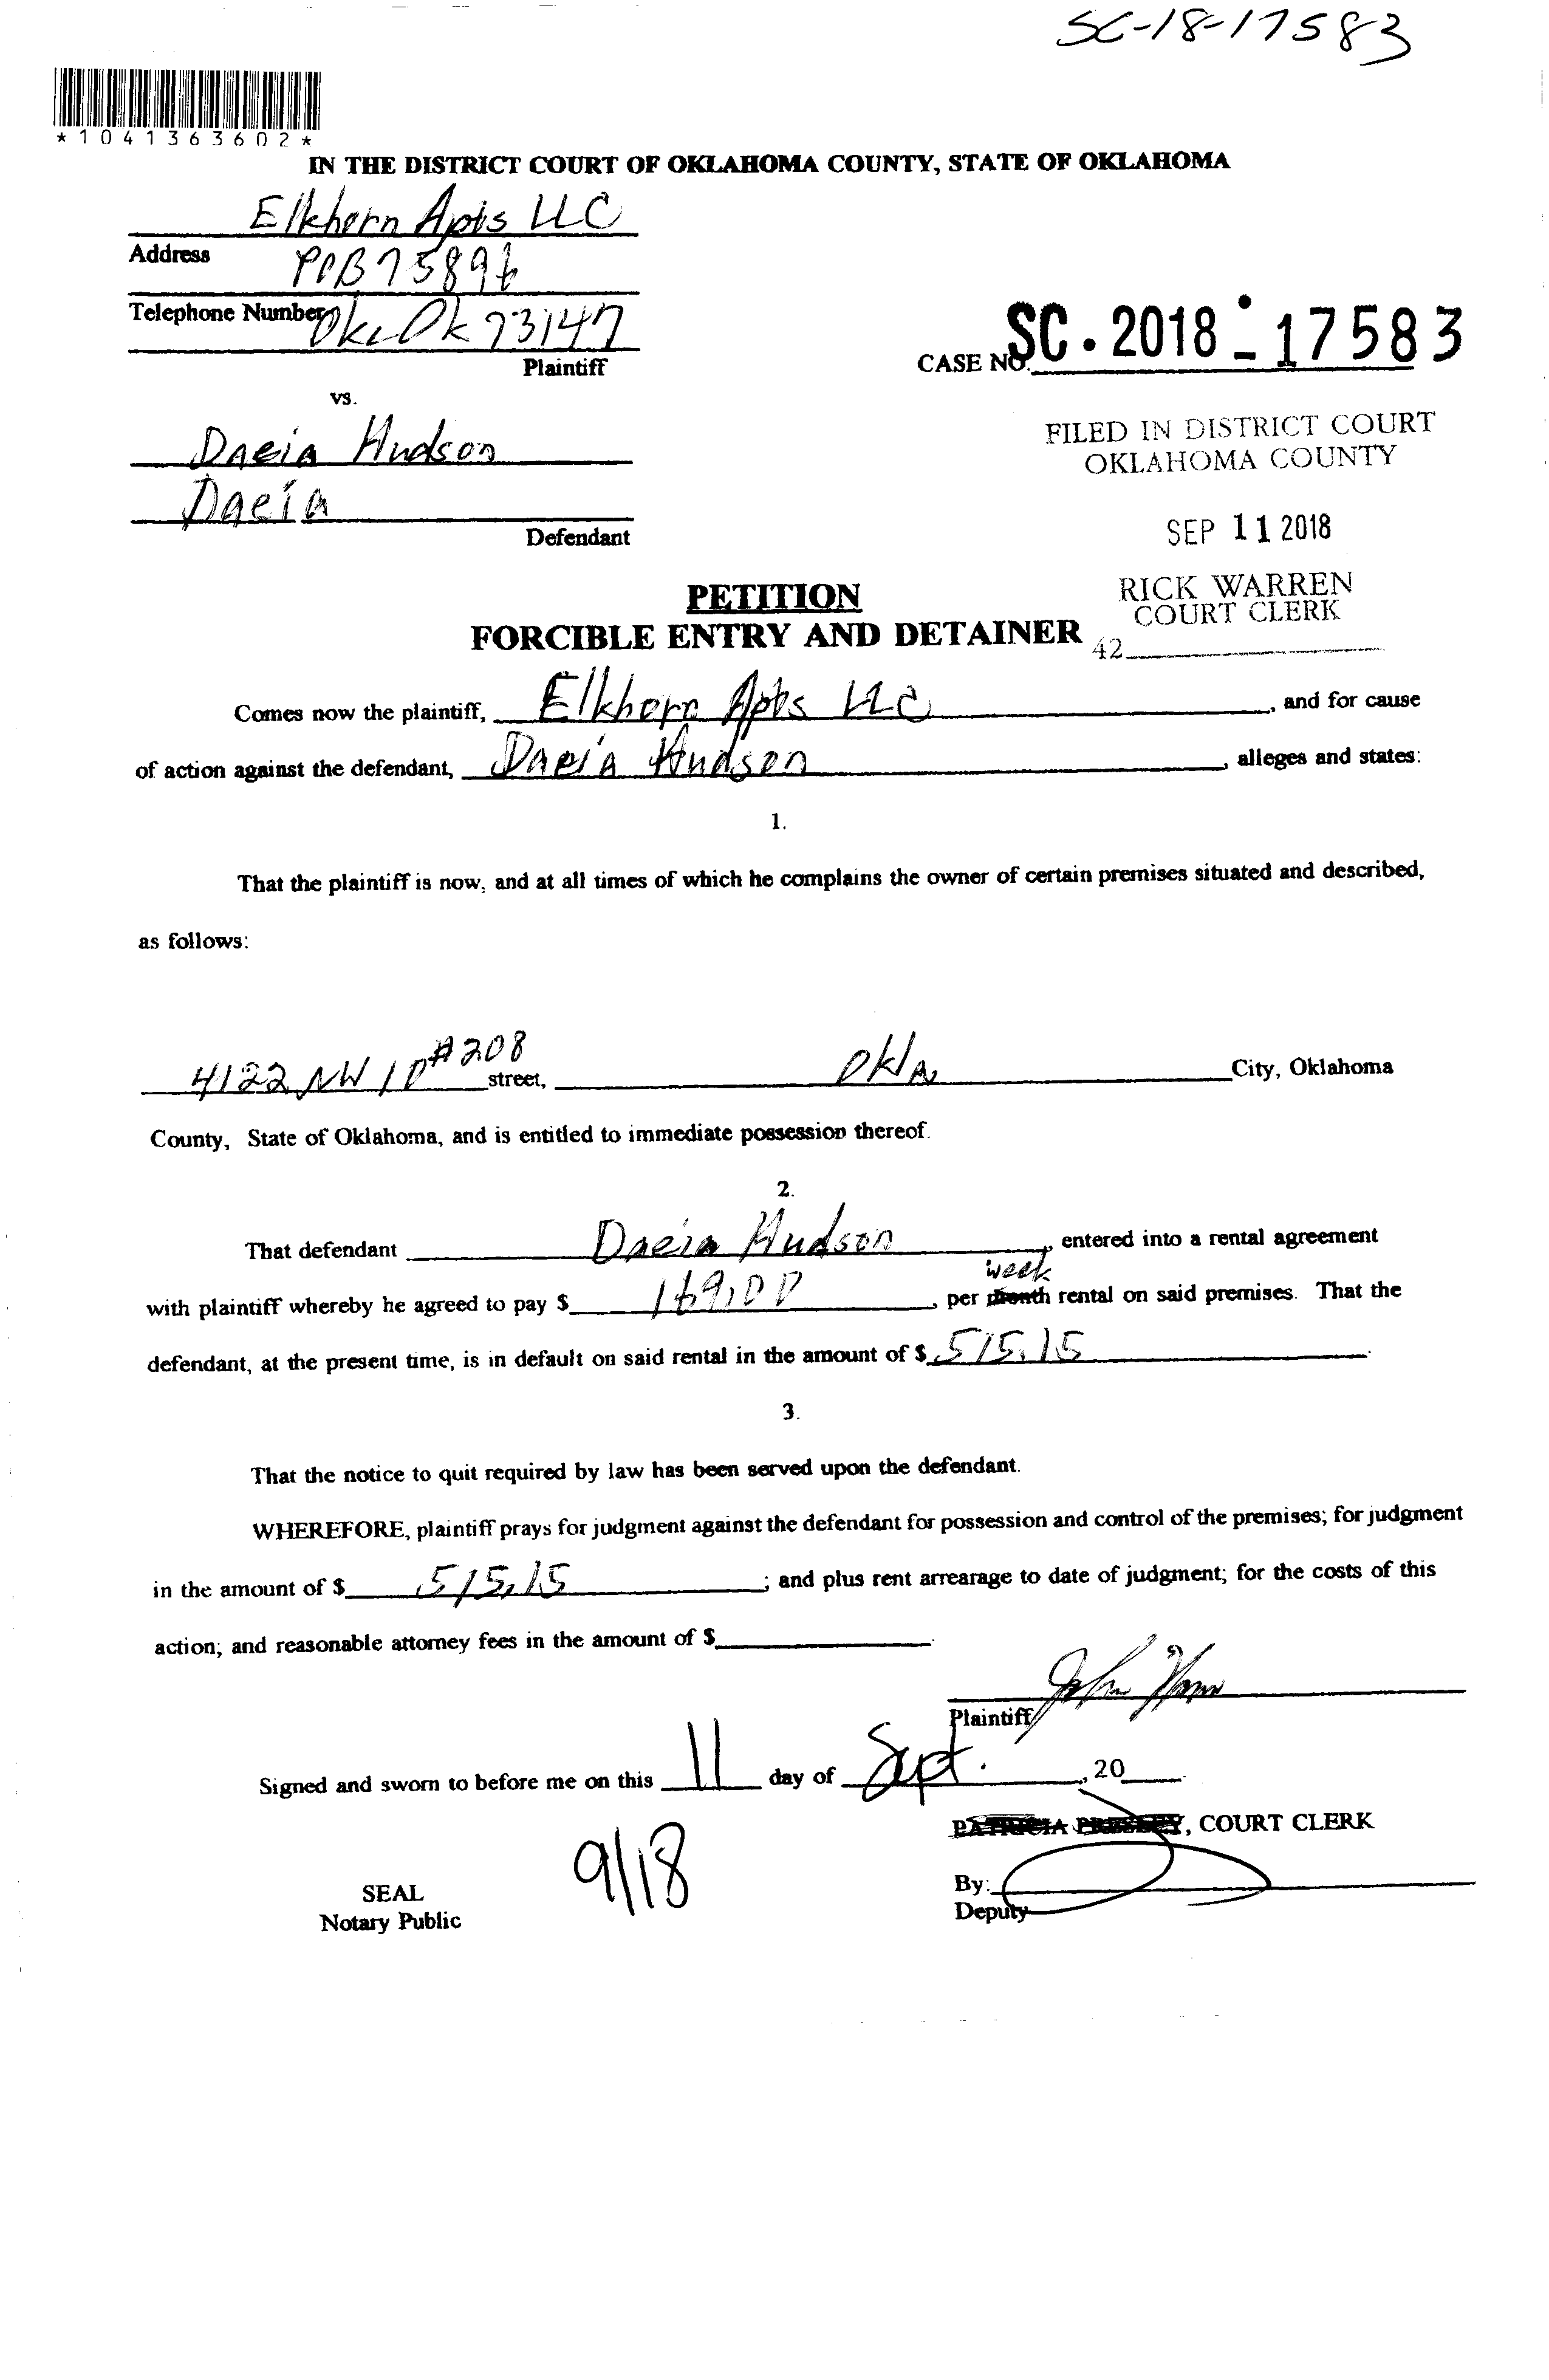 SC-18-17583
*1041363602*
IN THE DISTRICT COURT OF OKLAHOMA COUNTY, STATE OF OKLAHOMA
Elkhorn Apts LLC
Address POB 75896
Telephone Number Okc Ok 73147
Plaintiff
CASE NO. SC • 2018 - 17583
vs.
Daeia Hudson
Daeia
Defendant
FILED IN DISTRICT COURT
OKLAHOMA COUNTY
SEP 11 2018
RICK WARREN
COURT CLERK
42
PETITION
FORCIBLE ENTRY AND DETAINER
Comes now the plaintiff, Elkhorn Apts LLC, and for cause
of action against the defendant, Daeia Hudson, alleges and states:
1.
That the plaintiff is now, and at all times of which he complains the owner of certain premises situated and described,
as follows:
4122 NW 10 #208 street, Okla City, Oklahoma
County, State of Oklahoma, and is entitled to immediate possession thereof.
2.
That defendant Daeia Hudson, entered into a rental agreement
week
with plaintiff whereby he agreed to pay $ 169.00, per month rental on said premises. That the
defendant, at the present time, is in default on said rental in the amount of $ 515.15.
3.
That the notice to quit required by law has been served upon the defendant.
WHEREFORE, plaintiff prays for judgment against the defendant for possession and control of the premises; for judgment
in the amount of $ 515.15; and plus rent arrearage to date of judgment; for the costs of this
action; and reasonable attorney fees in the amount of $.
John
Plaintiff
Signed and sworn to before me on this 11 day of Sept., 20.
PATRICIA PRESLEY, COURT CLERK
9/18
SEAL
Notary Public
By:
Deputy